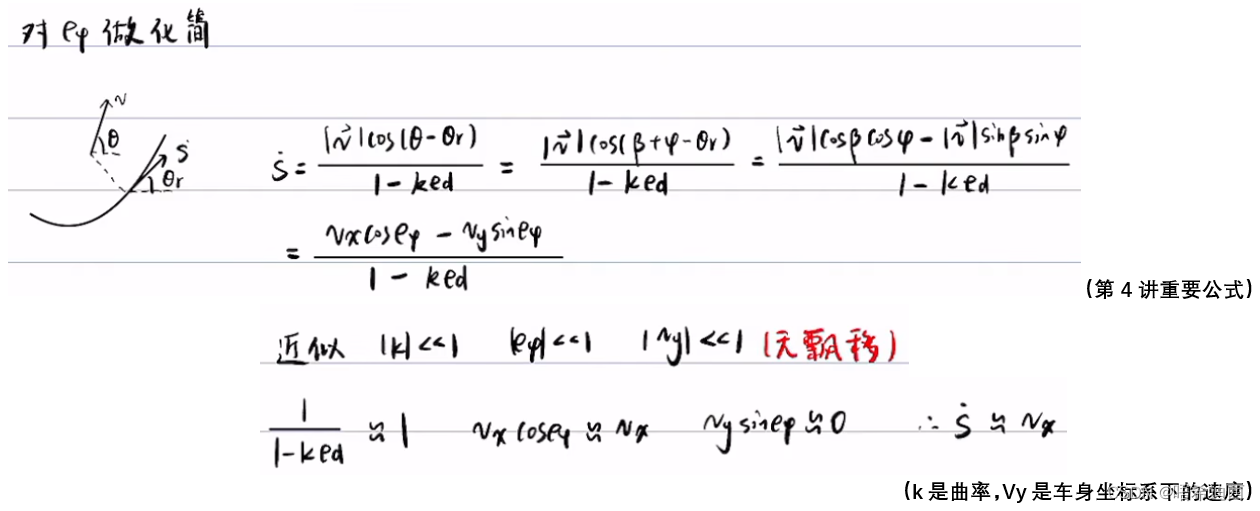 对 eφ 做化简
v θ ṡ θr
ṡ = |v⃗|cos(θ-θr) / 1-ked = |v⃗|cos(β+φ-θr) / 1-ked = |v⃗|cosβcosφ - |v⃗|sinβsinφ / 1-ked
= vxcoseφ - vysineφ / 1-ked
(第4讲重要公式)
近似 |k|<<1 |eφ|<<1 |vy|<<1 (无飘移)
1 / 1-ked ≈ 1 vxcoseφ ≈ vx vysineφ ≈ 0 ∴ ṡ ≈ vx
(k是曲率,Vy是车身坐标系下的速度)